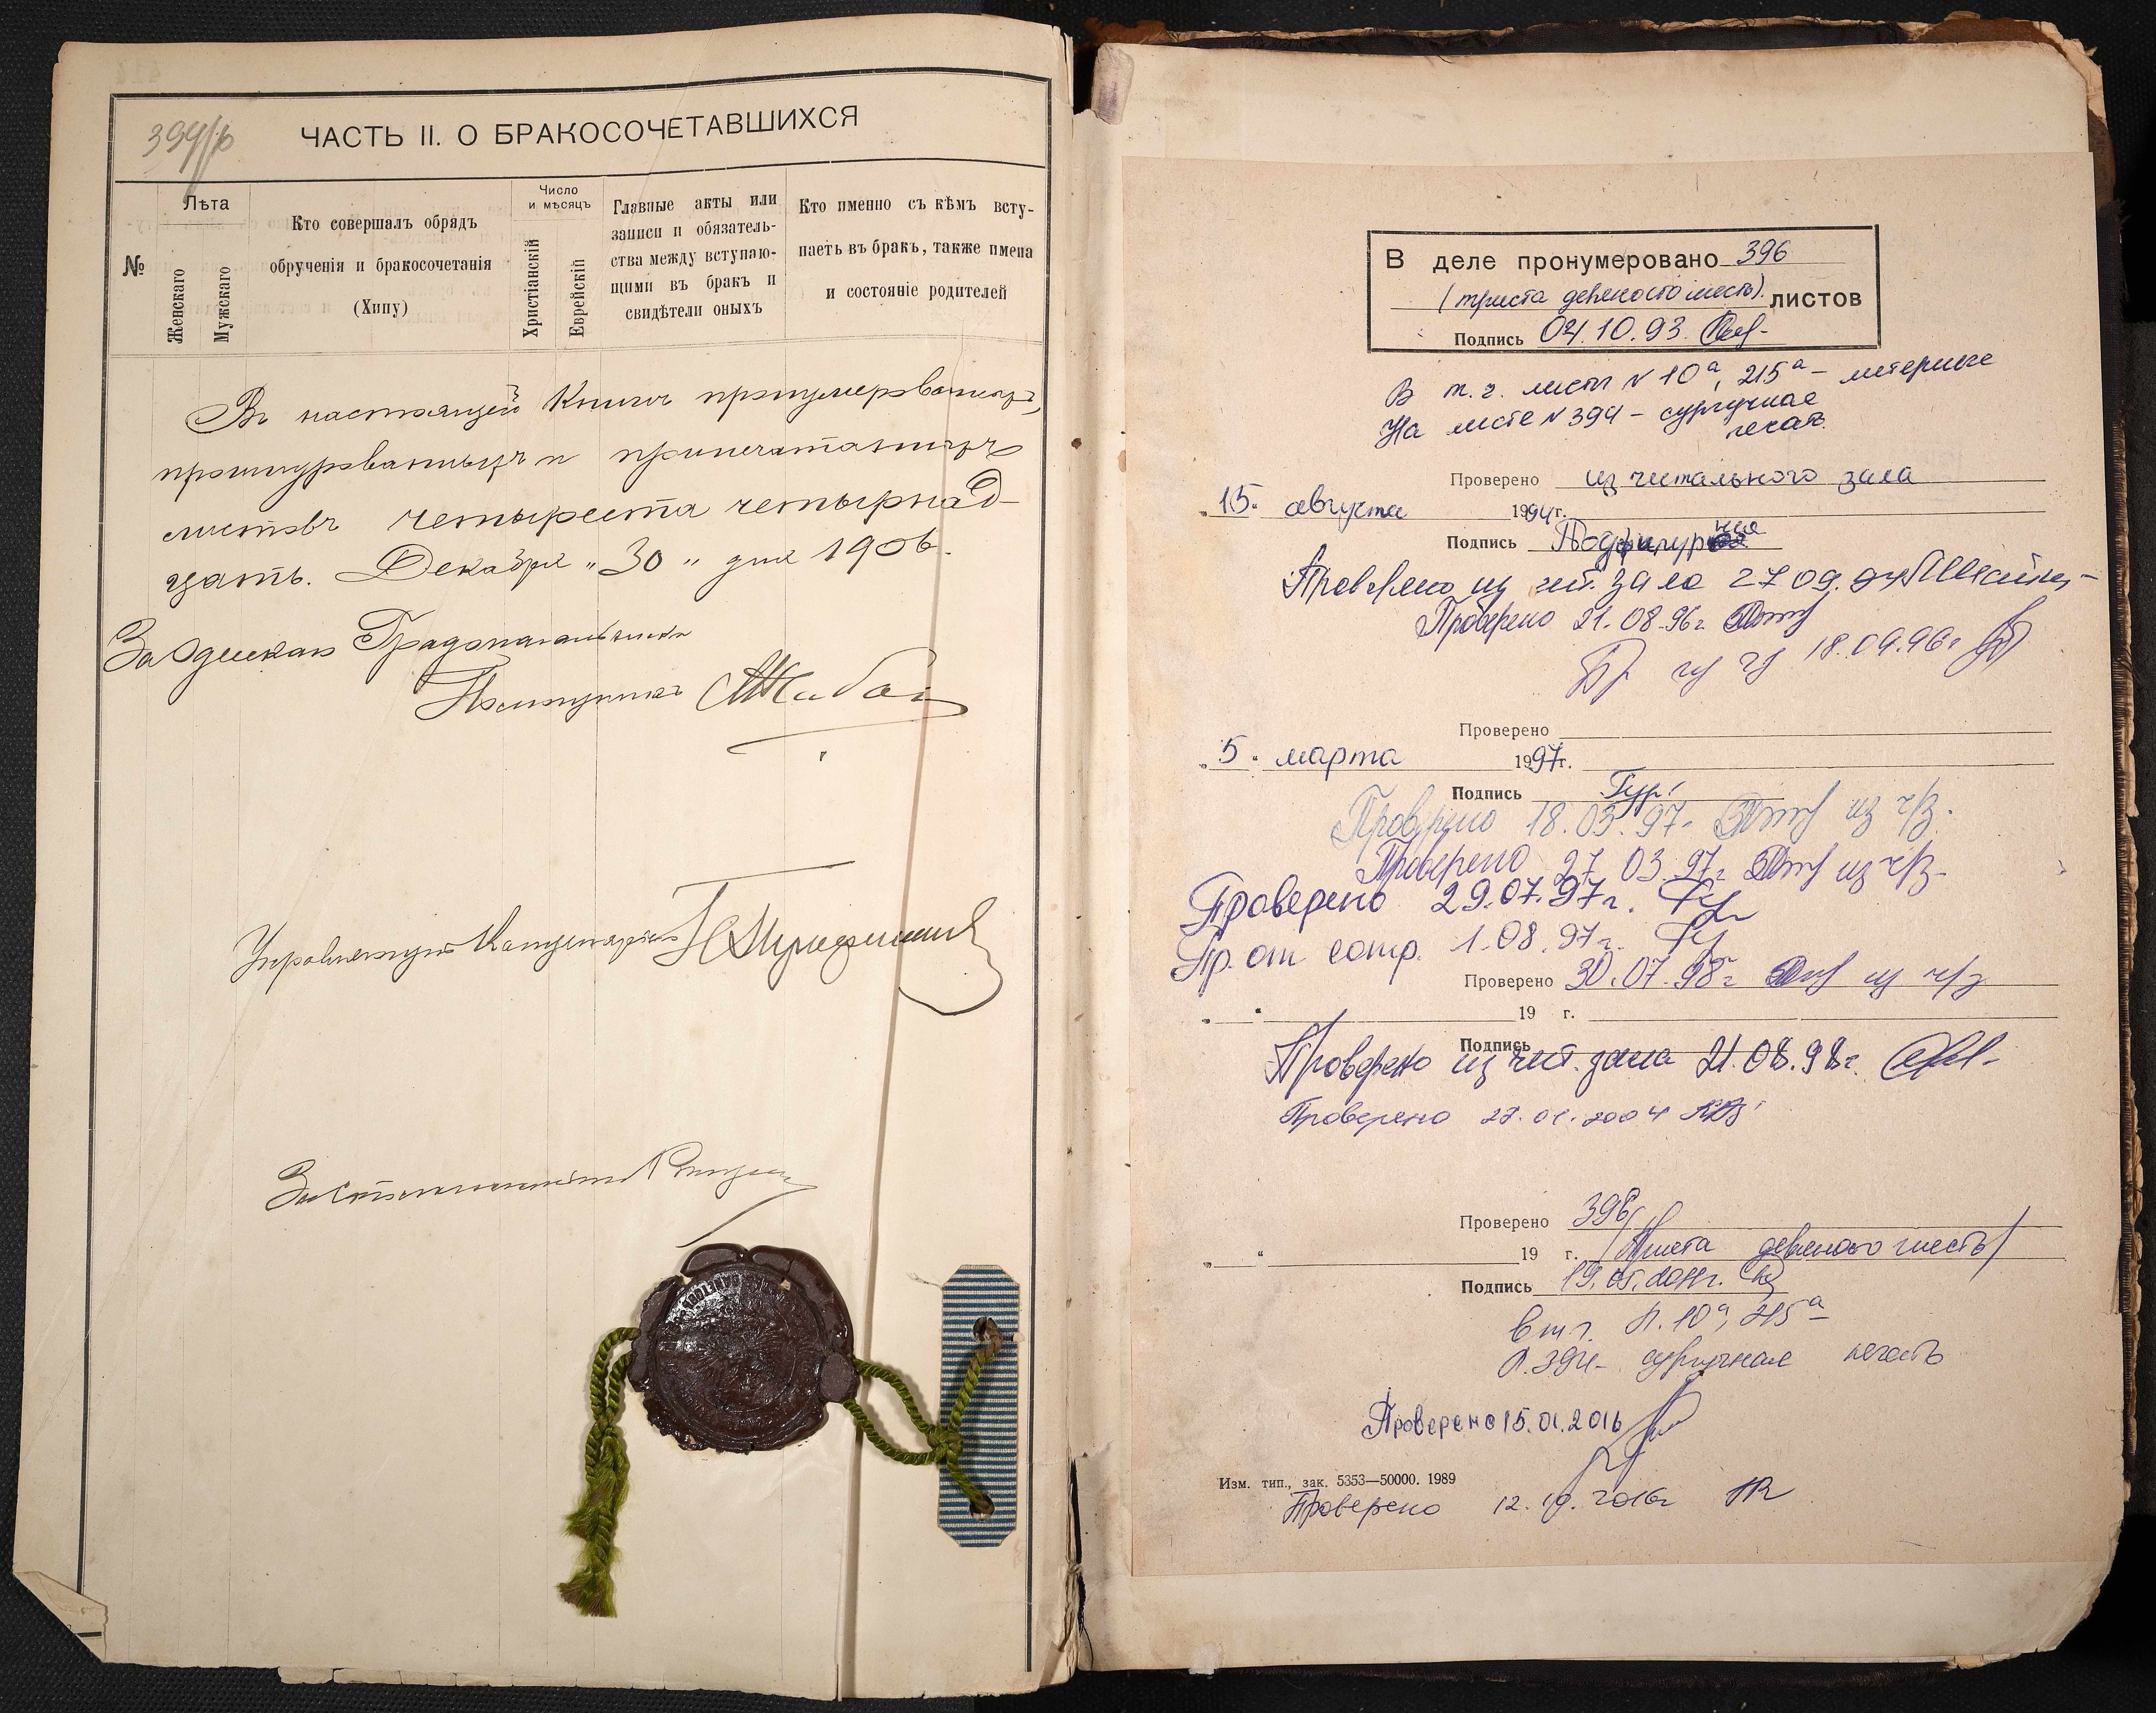 ЧАСТЬ II. О БРАКОСОЧЕТАВШИХСЯ
№
Лѣта
Женскаго
Мужскаго
Кто совершалъ обрядъ
обрученія и бракосочетанія
(Хипу)
Число
и мѣсяцъ
Христіанскій
Еврейскій
Главные акты или
записи и обязатель-
ства между вступаю-
щими въ бракъ и
свидѣтели оныхъ
Кто именно съ кѣмъ всту-
паетъ въ бракъ, также имена
и состояніе родителей
Въ настоящей Книгѣ пронумерованныхъ,
прошнурованныхъ и припечатанныхъ
листовъ четыреста четырнад-
цать. Декабря „30„ дня 1906.
За Одесскаго Градоначальника
Помощникъ
Управляющій Канцеляріею
В деле пронумеровано 396
(триста девяносто шесть). листов
Подпись 04.10.93.
В т.ч. листы N 10а, 215а – литерные
На листе N 394 – сургучная
печать.
Проверено из читального зала
„15„ августа 1994г.
Подпись
Проверено из чит. зала 27 09. 94
Проверено 21.08.96г
Пр из чз 18.09.96г
Проверено
„5“ марта 1997г.
Подпись Гур
Проверено 18.03.97. из ч/з.
Проверено 27.03.97г. из ч/з.
Проверено 29.07.97г.
Пр. от сотр. 1.08.97г.
Проверено 30.07.98г из ч/з
„ “ 19 г.
Подпись
Проверено из чит. зала 21.08.98г.
Проверено 27.01.2004
Проверено 396
„ “ 19 г. /триста девяносто шесть/
Подпись 19.05.2011г.
в т.ч. л. 10а, 215а
л.394- сургучная печать
Проверено 15.01.2016
Изм. тип., зак. 5353—50000. 1989
Проверено 12.10.2016г